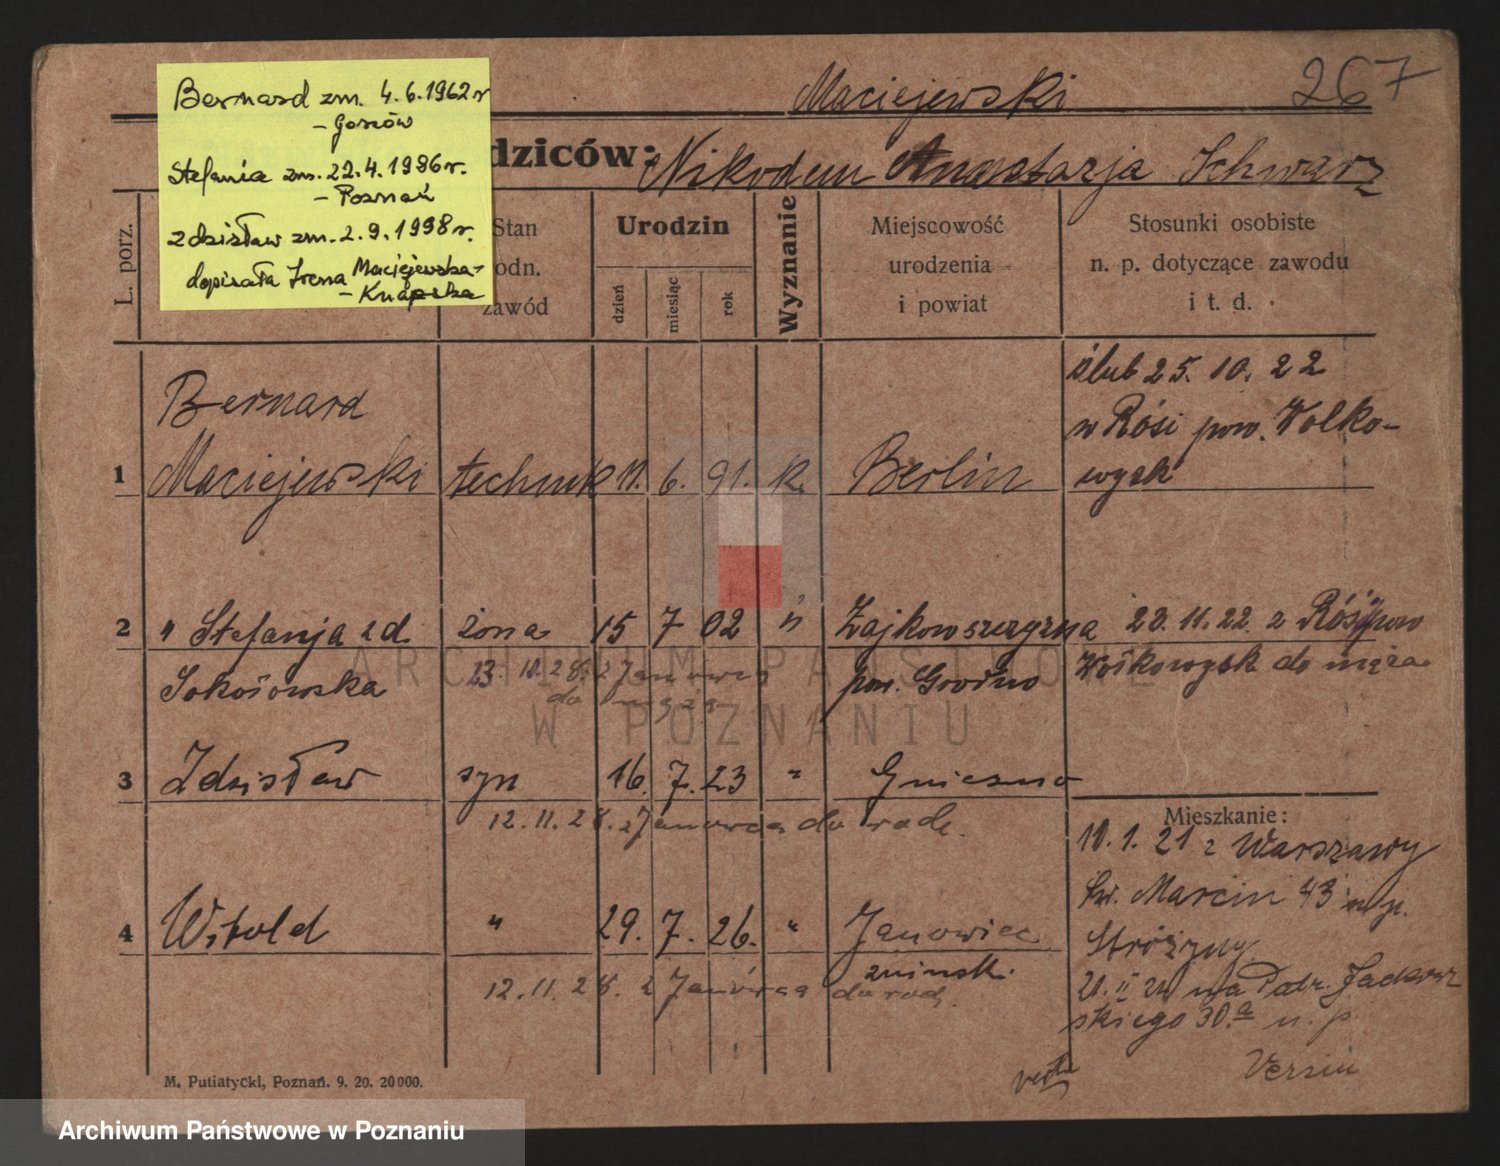 Maciejewski
267
Bernard zm. 4.6.1962 r
- Gorzów
Stefania zm. 22.4.1986 r.
- Poznań
Zdzisław zm. 2.9.1998 r.
dopisała Irena Maciejewska-
- Knapska
dziców: Nikodem Anastazja Schwarz
L. porz.
Stan
odn.
zawód
Urodzin
dzień
miesiąc
rok
Wyznanie
Miejscowość
urodzenia
i powiat
Stosunki osobiste
n. p. dotyczące zawodu
i t. d.
1
Bernard
Maciejewski
technik 11. 6. 91. k. Berlin
ślub 25. 10. 22
w Rósi pow. Wolko-
wysk
2 " Stefanja z d.
Sokołowska
żona 15 7 02 "
pow. Grodno
23.11.22 z Rósi pow
Wołkowysk do męża
do męża
3 Zdzisław syn 16. 7. 23 " Gniezno
12.11.28. z Janówca do rodz.
4 Witold " 29. 7. 26. " Janowiec
żninski.
12.11.28. z Janówca do rodz.
Mieszkanie:
10.1.21 z Warszawy
Św. Marcin 43
Stróżyny
skiego 30.a u. p.
verte
M. Putiatycki, Poznań. 9. 20. 20000.
ARCHIWUM PAŃSTWOWE
W POZNANIU
Archiwum Państwowe w Poznaniu